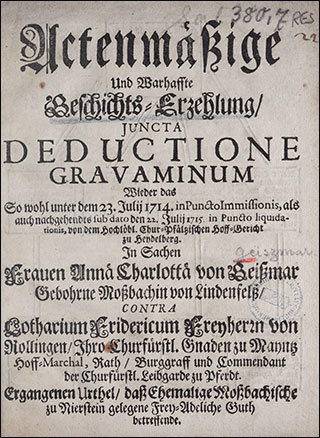 380,7 RES
22
Actenmäßige
Und Warhaffte
Geschichts-Erzehlung/
JUNCTA
DEDUCTIONE
GRAVAMINUM
Wieder das
So wohl unter dem 23. Julij 1714. in Puncto Immissionis, als
auch nachgehendts sub dato den 22. Julij 1715. in Puncto liquida-
tionis, von dem Hochlöbl. Chur-Pfältzischen Hoff-Gericht
zu Heydelberg.
geiszmar
In Sachen
Frauen Annä Charlottä von Geißmar
Gebohrne Moßbachin von Lindenfelß/
CONTRA
Lotharium Fridericum Freyherrn von
Rollingen/ Ihro Churfürstl. Gnaden zu Mayntz
Hoff-Marchal, Rath/ Burggraff und Commendant
der Churfürstl. Leibgarde zu Pferdt.
Ergangenen Urthel/ daß Ehemalige Moßbachische
zu Nierstein gelegene Frey-Adeliche Guth
betreffende.